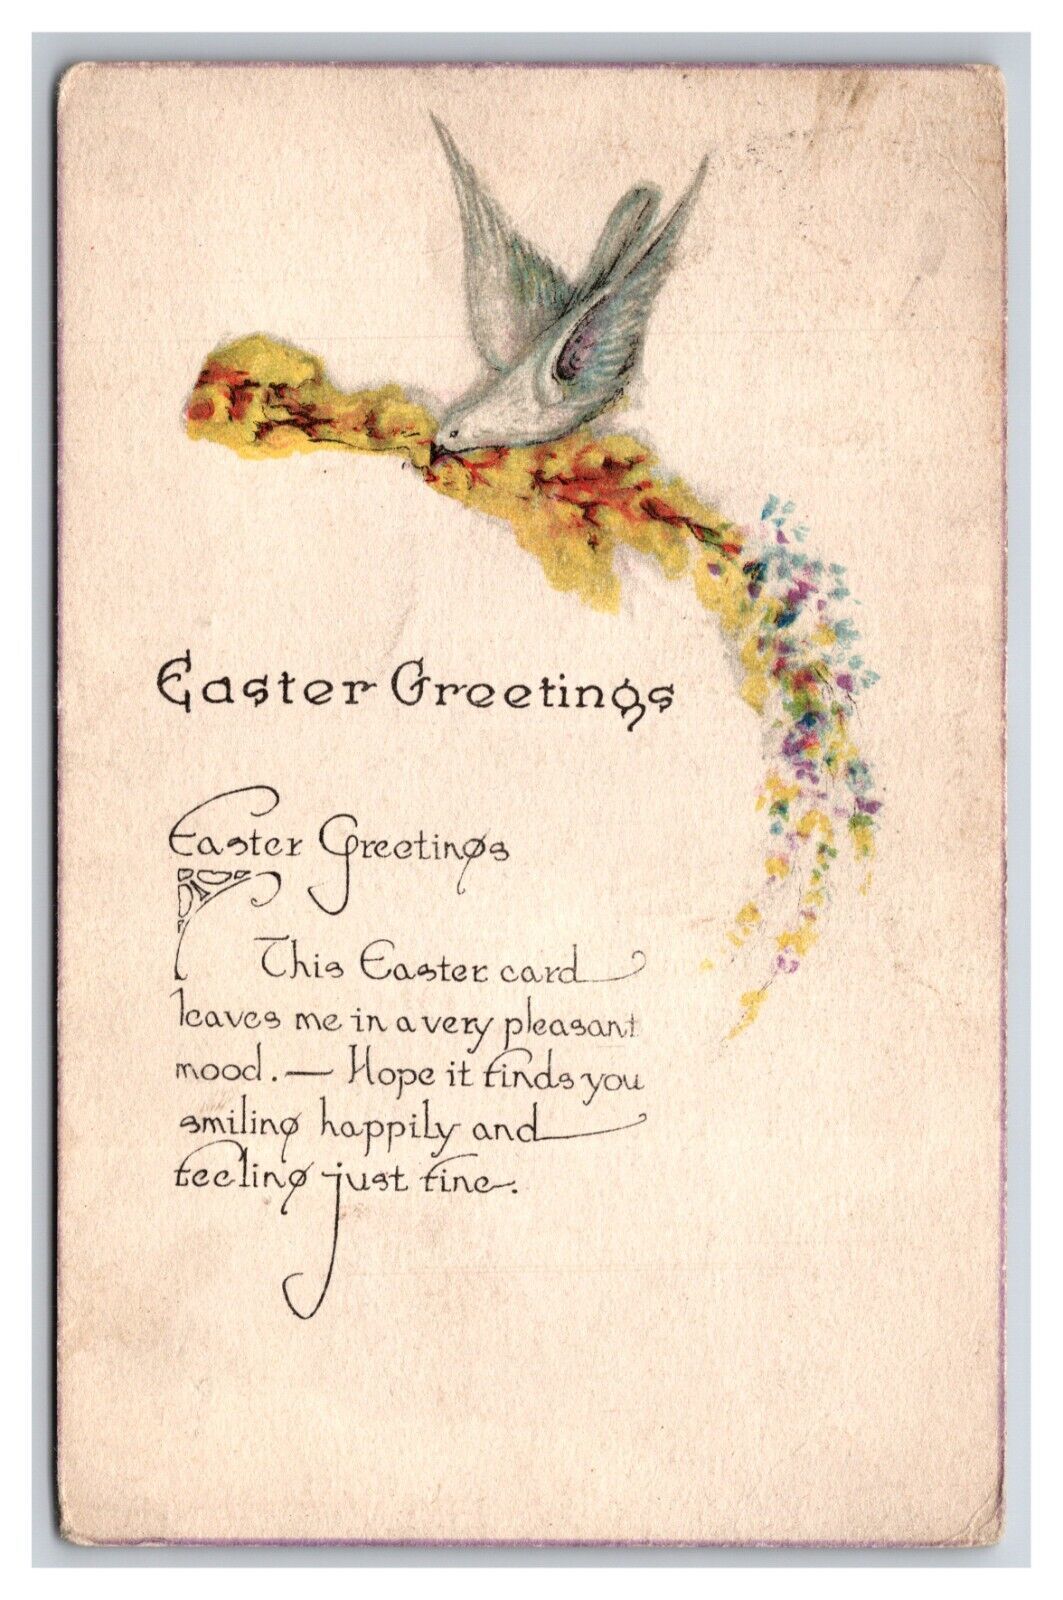 Easter Greetings
Easter Greetings
This Easter card
leaves me in a very pleasant
mood. — Hope it finds you
smiling happily and
feeling just fine.